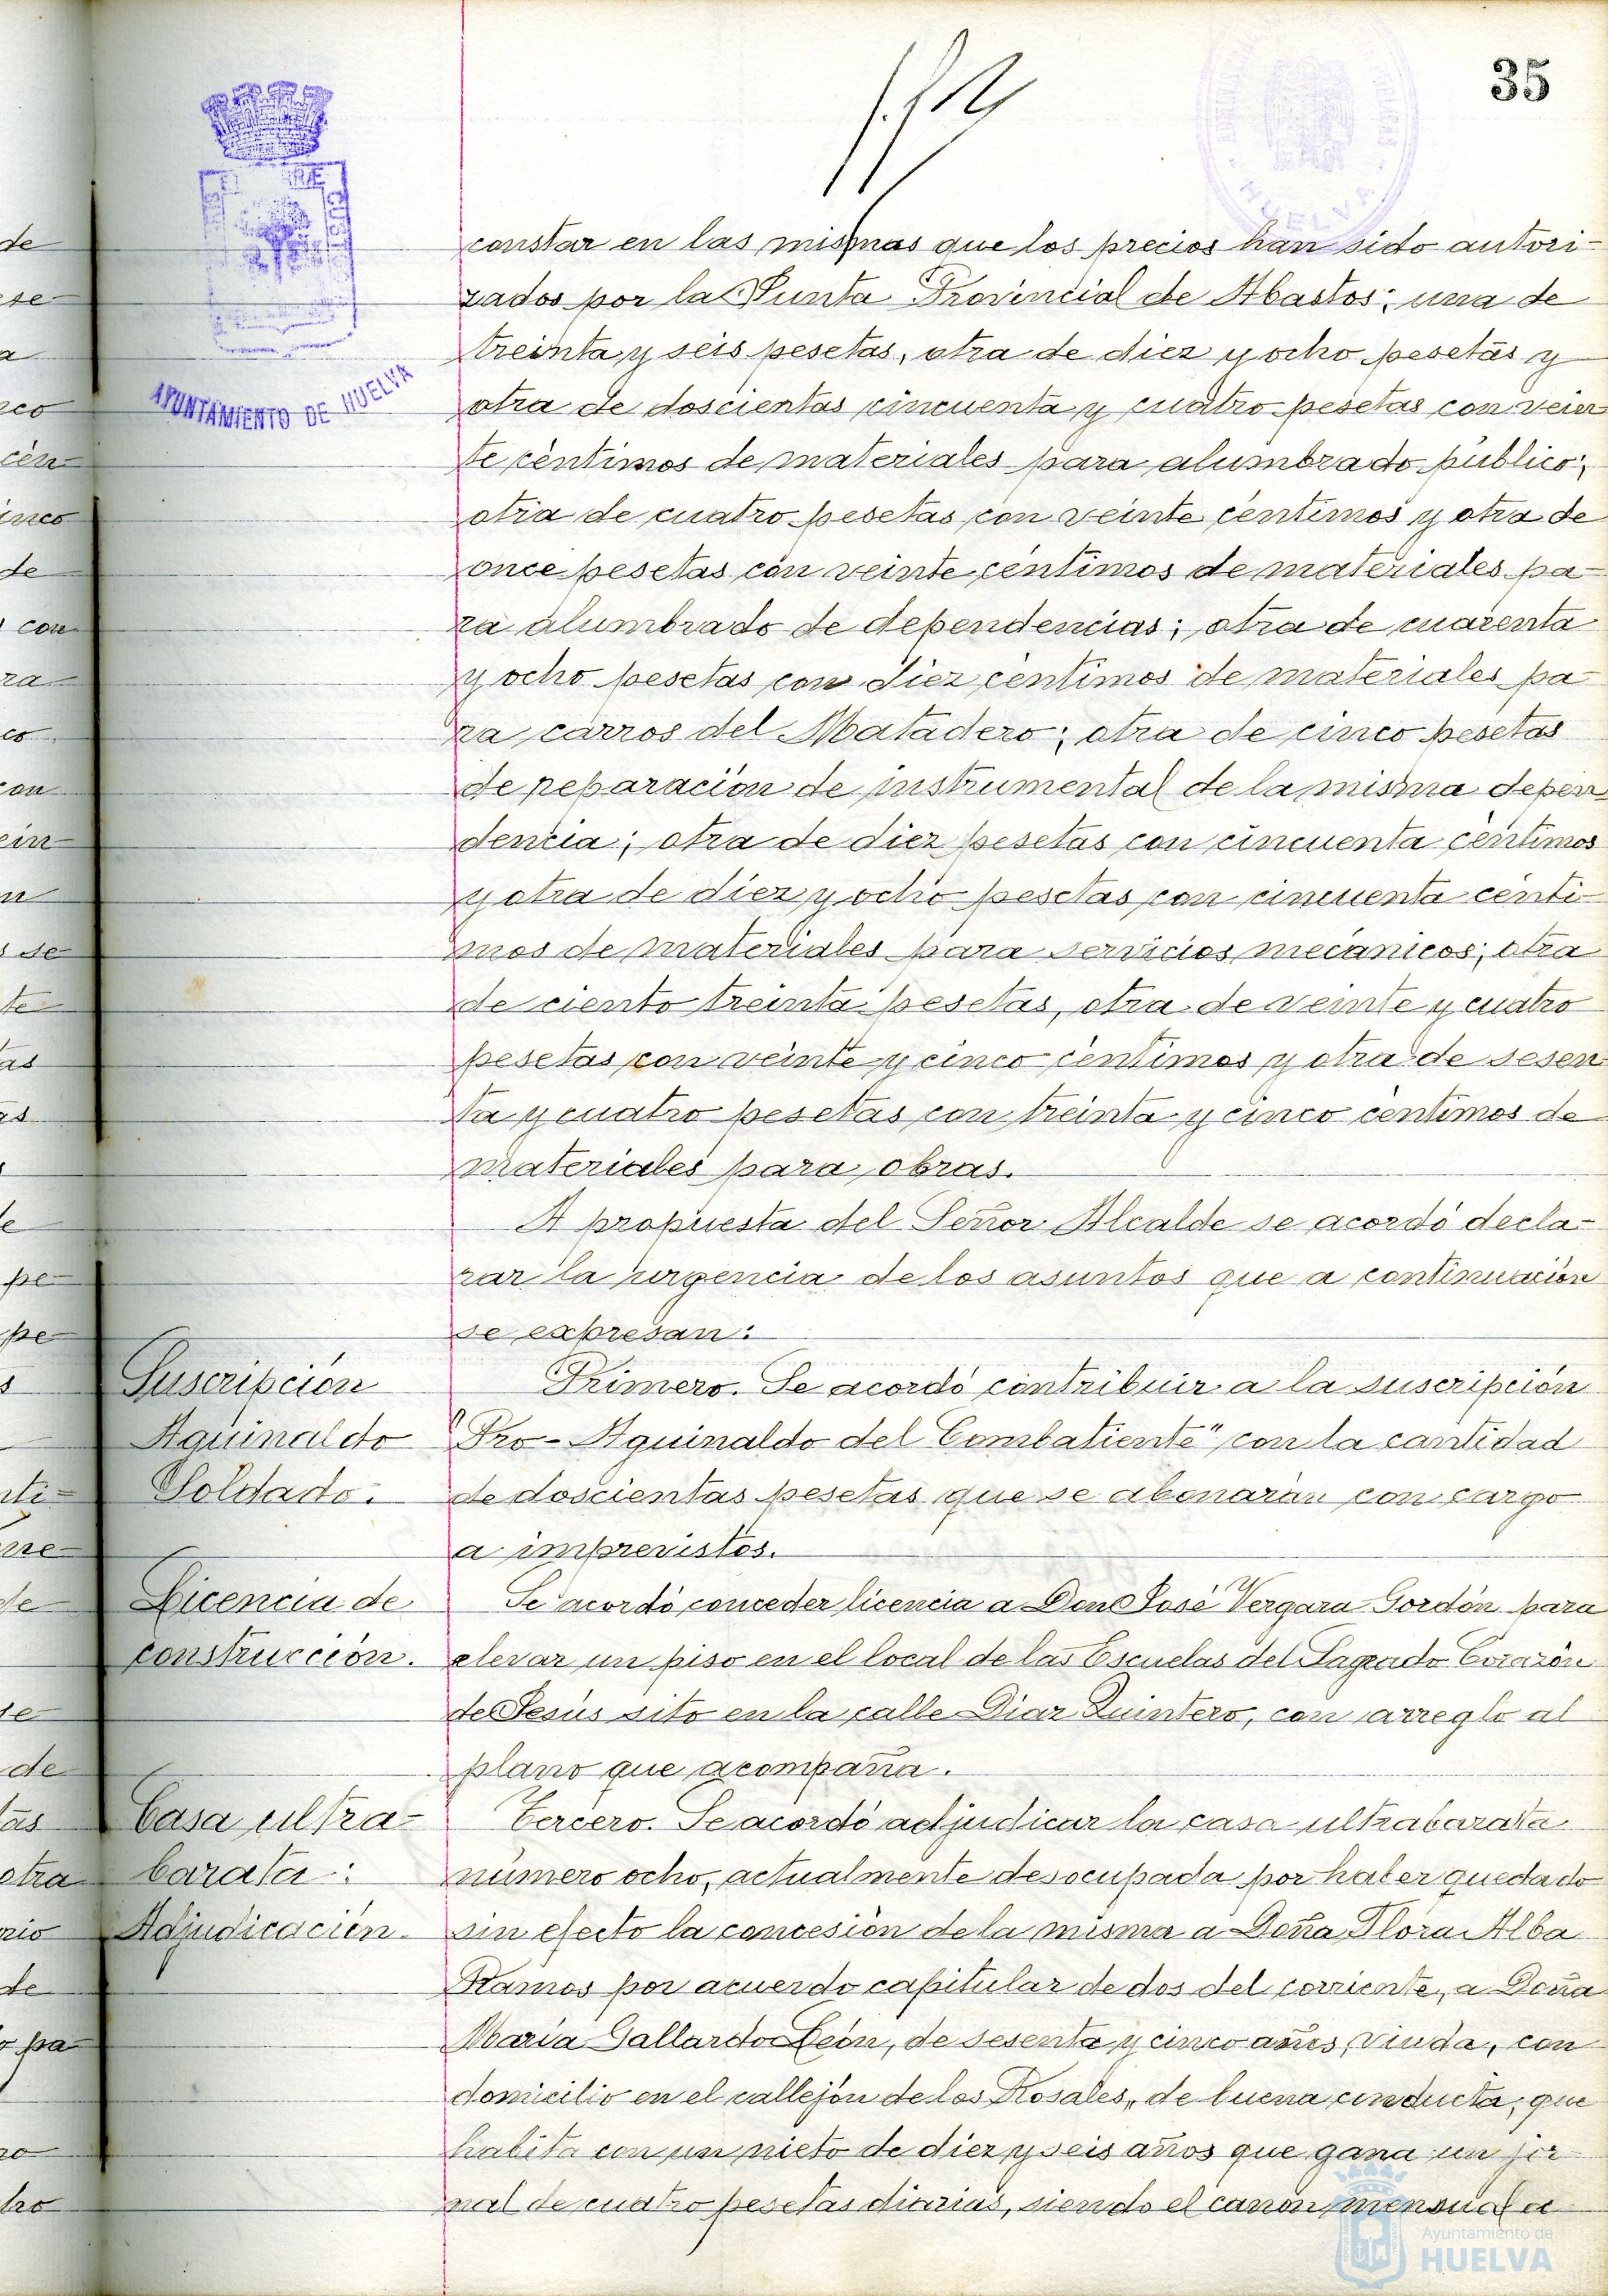 35
AYUNTAMIENTO DE HUELVA
HUELVA
constar en las mismas que los precios han sido autori-
zados por la Junta Provincial de Abastos; una de
treinta y seis pesetas, otra de diez y ocho pesetas y
otra de doscientas cincuenta y cuatro pesetas con vein
te céntimos de materiales para alumbrado público;
otra de cuatro pesetas con veinte céntimos y otra de
once pesetas con veinte céntimos de materiales pa-
ra alumbrado de dependencias; otra de cuarenta
y ocho pesetas con diez céntimos de materiales pa-
ra carros del Matadero; otra de cinco pesetas
de reparación de instrumental de la misma depen
dencia; otra de diez pesetas con cincuenta céntimos
y otra de diez y ocho pesetas con cincuenta cénti-
mos de materiales para servicios mecánicos; otra
de ciento treinta pesetas, otra de veinte y cuatro
pesetas con veinte y cinco céntimos y otra de sesen
ta y cuatro pesetas con treinta y cinco céntimos de
materiales para obras.
A propuesta del Señor Alcalde se acordó decla-
rar la urgencia de los asuntos que a continuación
se expresan:
Suscripción
Aguinaldo
Soldado.
Primero. Se acordó contribuir a la suscripción
"Pro-Aguinaldo del Combatiente" con la cantidad
de doscientas pesetas que se abonarán con cargo
a imprevistos.
Licencia de
construcción.
Se acordó conceder licencia a Don José Vergara Gordón para
elevar un piso en el local de las Escuelas del Sagrado Corazón
de Jesús sito en la calle Diaz Quintero, con arreglo al
plano que acompaña.
Casa ultra-
barata:
Adjudicación.
Tercero. Se acordó adjudicar la casa ultrabarata
número ocho, actualmente desocupada por haber quedado
sin efecto la concesión de la misma a Doña Flora Alba
Ramos por acuerdo capitular de dos del corriente, a Doña
María Gallardo León, de sesenta y cinco años, viuda, con
domicilio en el callejón de los Rosales, de buena conducta, que
habita con un nieto de diez y seis años que gana un jor
nal de cuatro pesetas diarias, siendo el canon mensual a
Ayuntamiento de
HUELVA